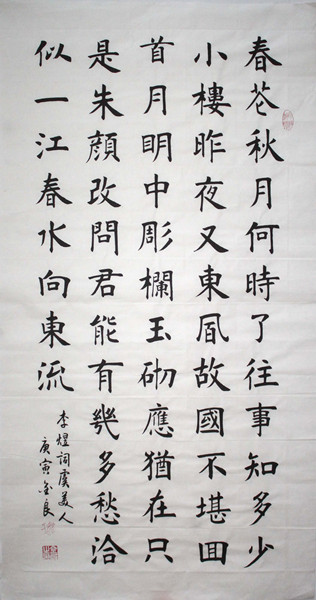 春花秋月何時了往事知多少
小樓昨夜又東風故國不堪回
首月明中彫欄玉砌應猶在只
是朱顔改問君能有幾多愁洽
似一江春水向東流
李煜詞虞美人
庚寅金良